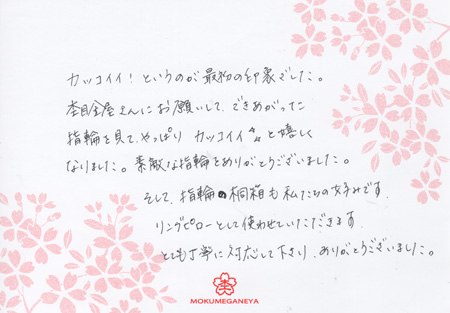 カッコイイ！というのが最初の印象でした。
杢目金屋さんにお願いして、できあがった
指輪を見て、やっぱり カッコイイ と嬉しく
なりました。素敵な指輪をありがとうございました。
そして、指輪の桐箱も私たちの好みです
リングピローとして使わせていただきます
とても丁寧に対応して下さり、ありがとうございました。
MOKUMEGANEYA